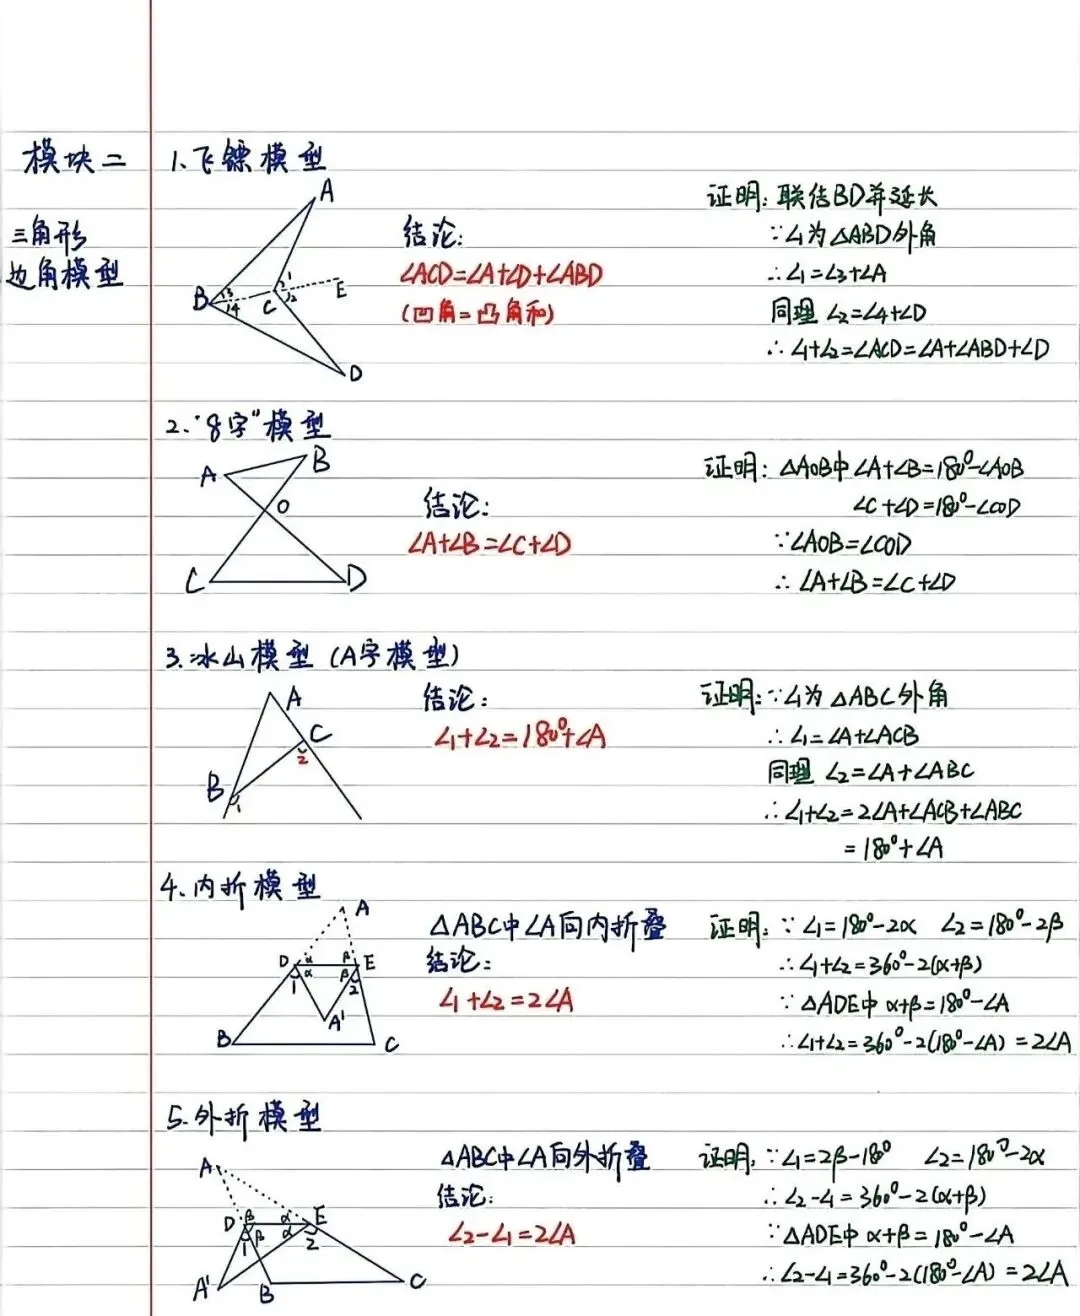 模块二
三角形
边角模型
1.飞镖模型
A
B
C
D
E
1
2
3
4
结论:
∠ACD=∠A+∠D+∠ABD
(凹角=凸角和)
证明: 联结BD并延长
∵∠1为△ABD外角
∴∠1=∠3+∠A
同理 ∠2=∠4+∠D
∴∠1+∠2=∠ACD=∠A+∠ABD+∠D
2."8字"模型
A
B
O
C
D
结论:
∠A+∠B=∠C+∠D
证明: △AOB中∠A+∠B=180°-∠AOB
∠C+∠D=180°-∠COD
∵∠AOB=∠COD
∴∠A+∠B=∠C+∠D
3.冰山模型 (A字模型)
A
C
2
B
1
结论:
∠1+∠2=180°+∠A
证明: ∵∠1为△ABC外角
∴∠1=∠A+∠ACB
同理 ∠2=∠A+∠ABC
∴∠1+∠2=2∠A+∠ACB+∠ABC
=180°+∠A
4.内折模型
A
D α β E
α β
1 2
A'
B C
△ABC中∠A向内折叠
结论:
∠1+∠2=2∠A
证明: ∵∠1=180°-2α ∠2=180°-2β
∴∠1+∠2=360°-2(α+β)
∵△ADE中 α+β=180°-∠A
∴∠1+∠2=360°-2(180°-∠A)=2∠A
5.外折模型
A
D β α E
1 β α 2
A' B C
△ABC中∠A向外折叠
结论:
∠2-∠1=2∠A
证明: ∵∠1=2β-180° ∠2=180°-2α
∴∠2-∠1=360°-2(α+β)
∵△ADE中 α+β=180°-∠A
∴∠2-∠1=360°-2(180°-∠A)=2∠A